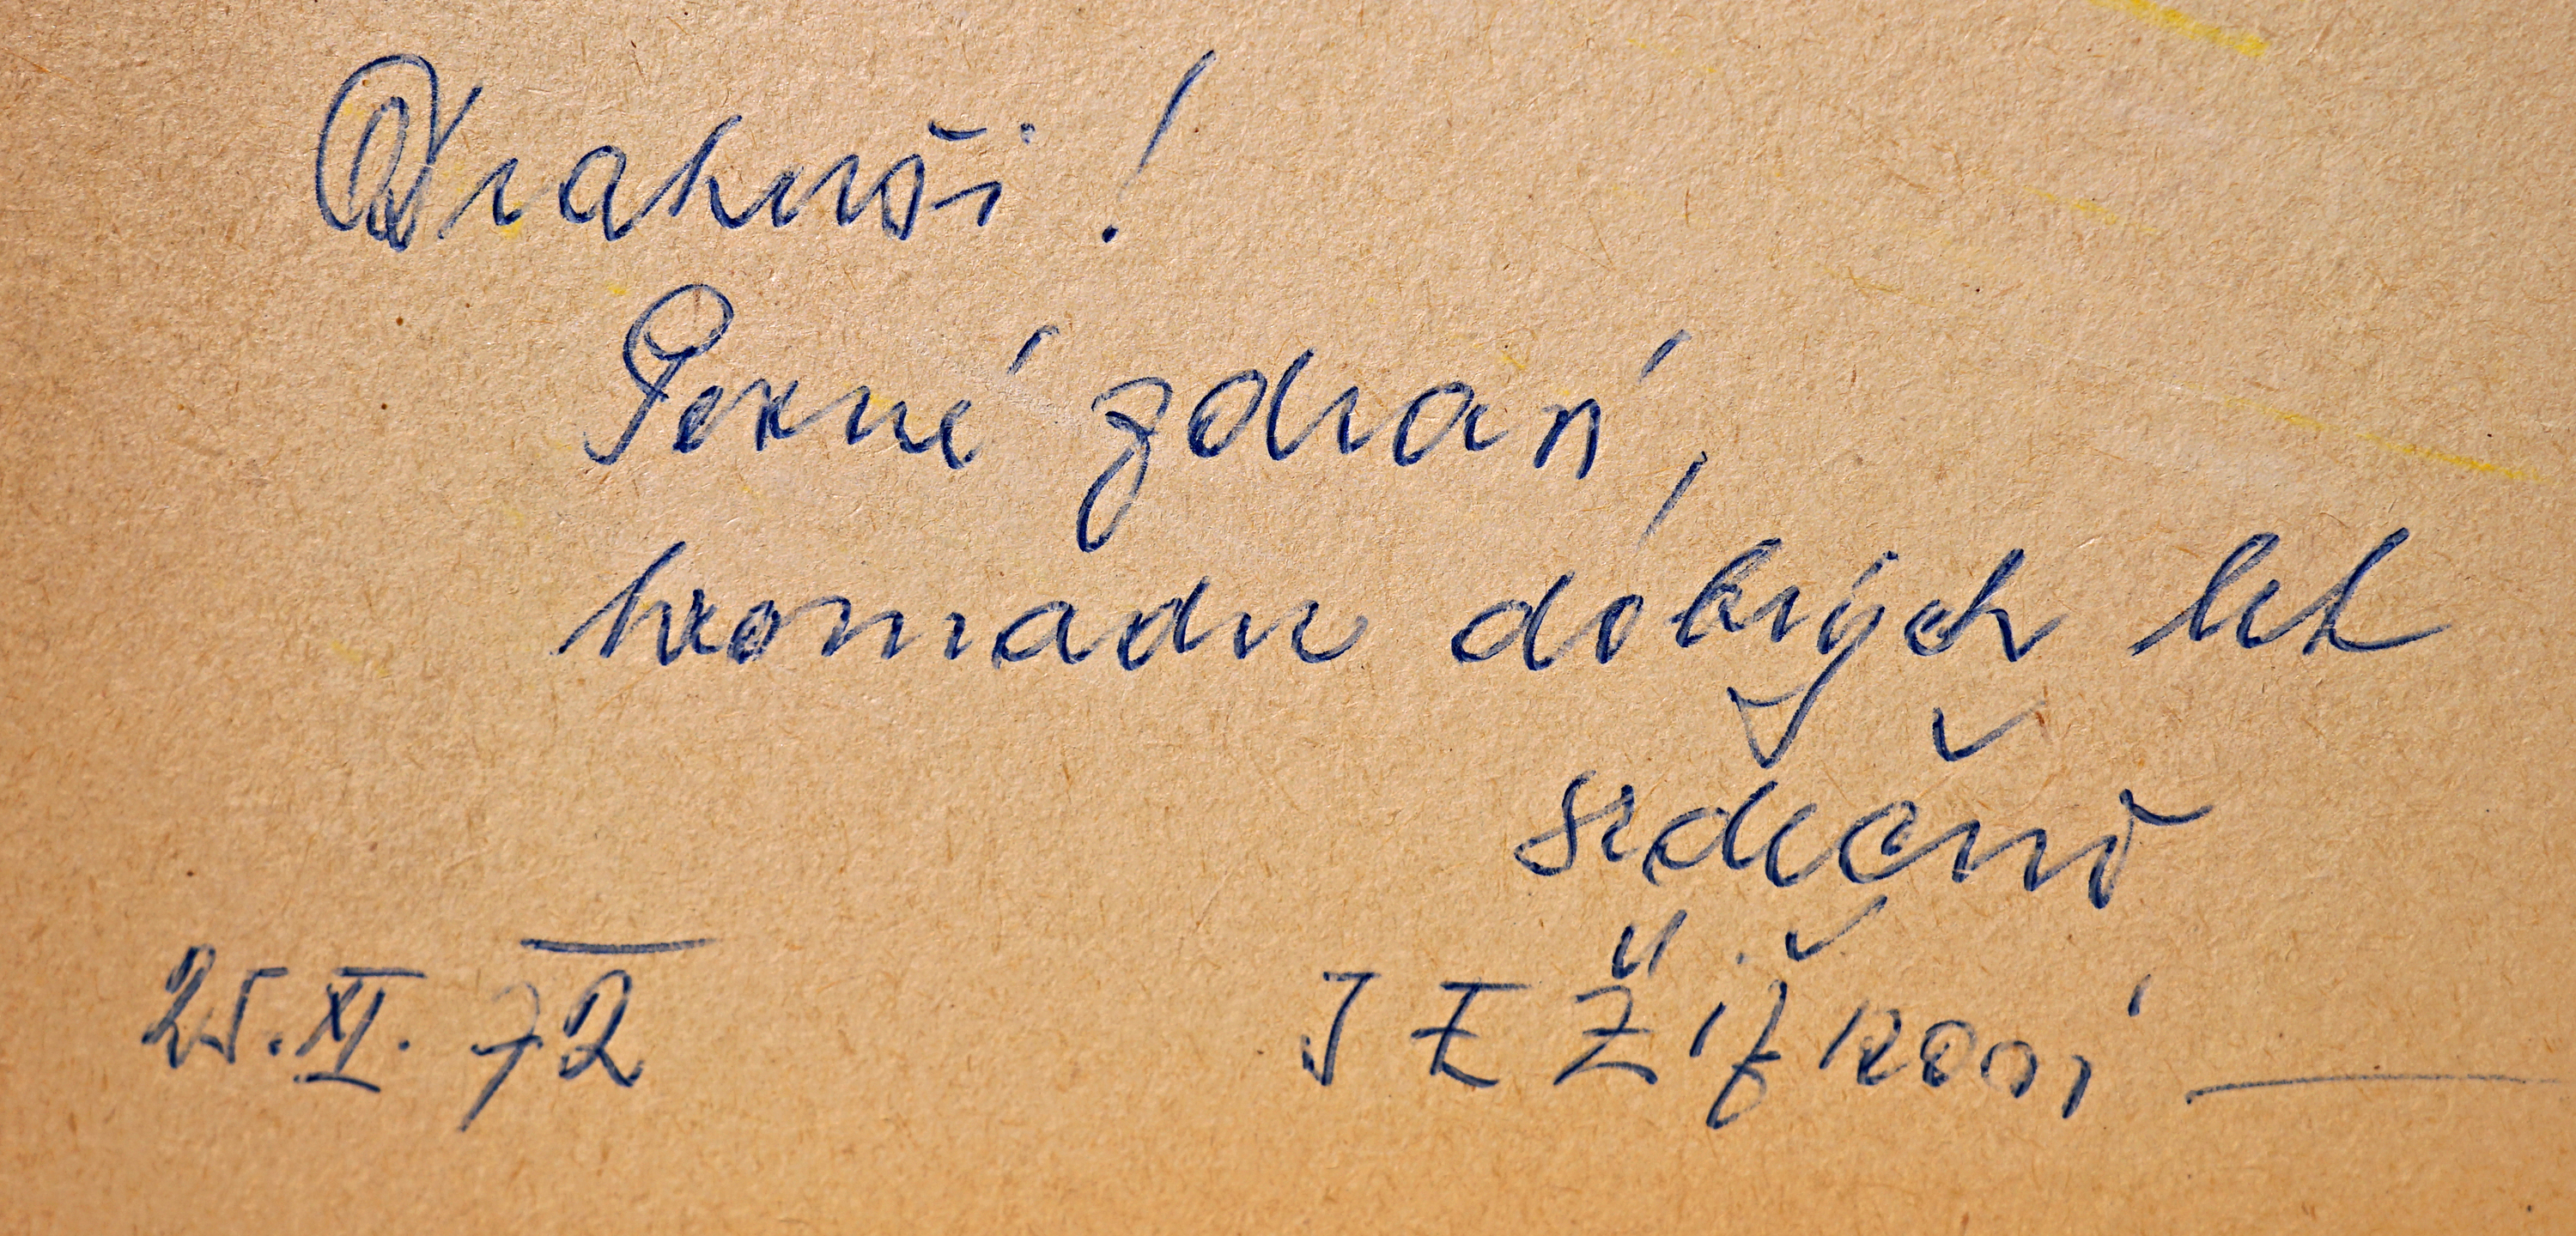 Drahuši!
Pevné zdraví,
hromadu dobrých let
srdečně
25. XI. 72 JEŽÍŽKOVÍ